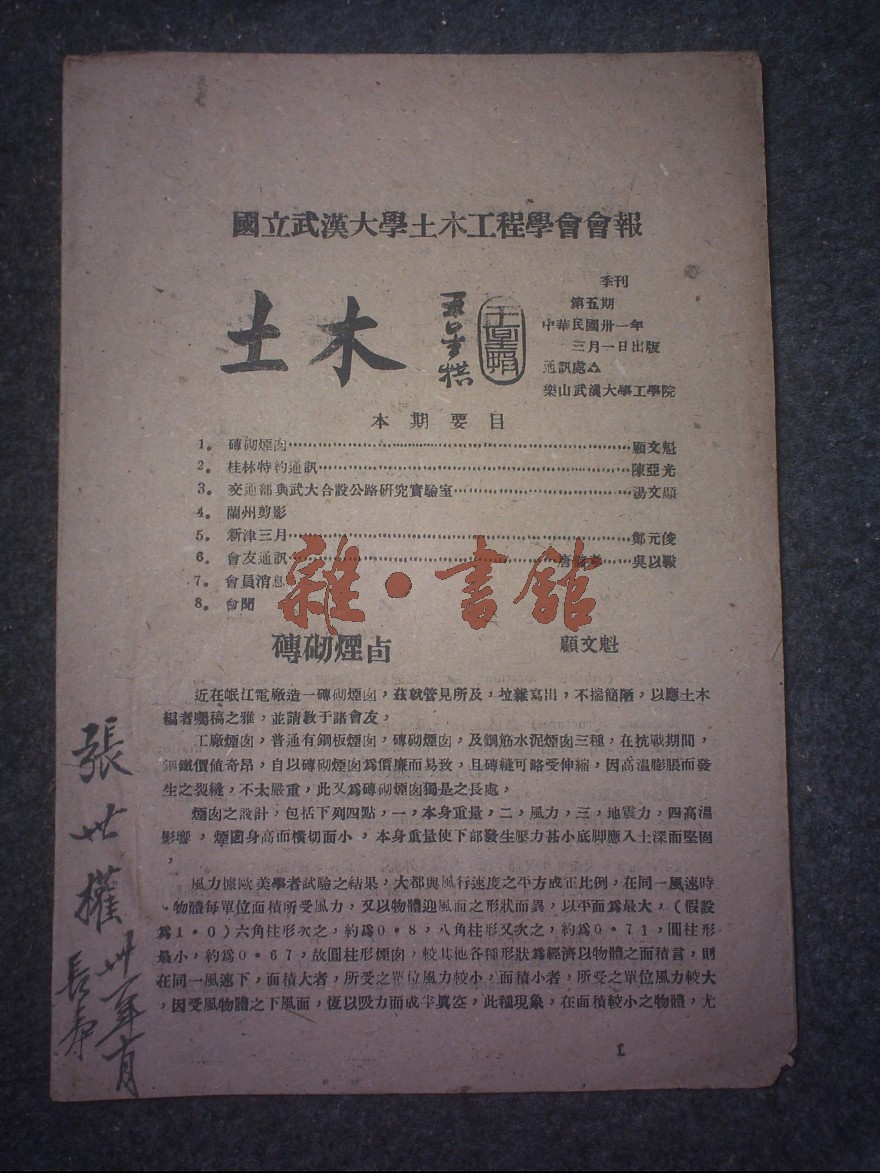 國立武漢大學土木工程學會會報
土木
季刊
第五期
中華民國卅一年
三月一日出版
通訊處△
樂山武漢大學工學院
本期要目
1。 磚砌煙囪……顧文魁
2。 桂林特約通訊……陳亞光
3。 交通部與武大合設公路研究實驗室……湯文顯
4。 蘭州剪影
5。 新津三月……鄭元俊
6。 會友通訊……吳以敼
7。 會員消息
8。 會聞
雜·書館
磚砌煙卣 顧文魁
近在岷江電廠造一磚砌煙囪，茲就管見所及，拉雜寫出，不揣簡陋，以應土木
編者囑稿之雅，並請敎于諸會友，
工廠煙囪，普通有鋼板煙囪，磚砌煙囪，及鋼筋水泥煙囪三種，在抗戰期間，
鋼鐵價値奇昂，自以磚砌煙囪爲價廉而易致，且磚縫可略受伸縮，因高溫膨脹而發
生之裂縫，不太嚴重，此又爲磚砌煙囪獨是之長處，
煙囪之設計，包括下列四點，一，本身重量，二，風力，三，地震力，四高溫
影響，煙囱身高而橫切面小，本身重量使下部發生壓力甚小底脚應入土深而堅固
，
風力據歐美學者試驗之結果，大都與風行速度之平方成正比例，在同一風速時
，物體每單位面積所受風力，又以物體迎風面之形狀而異，以平面爲最大，（假設
爲1·0）六角柱形次之，約爲0·8，八角柱形又次之，約爲0·71，圓柱形
最小，約爲0·67，故圓柱形煙囪，較其他各種形狀爲經濟以物體之面積言，則
在同一風速下，面積大者，所受之單位風力較小，面積小者，所受之單位風力較大
，因受風物體之下風面，恆以吸力而成半眞空，此種現象，在面積較小之物體，尤
1
張世權
卅一年六月
長壽